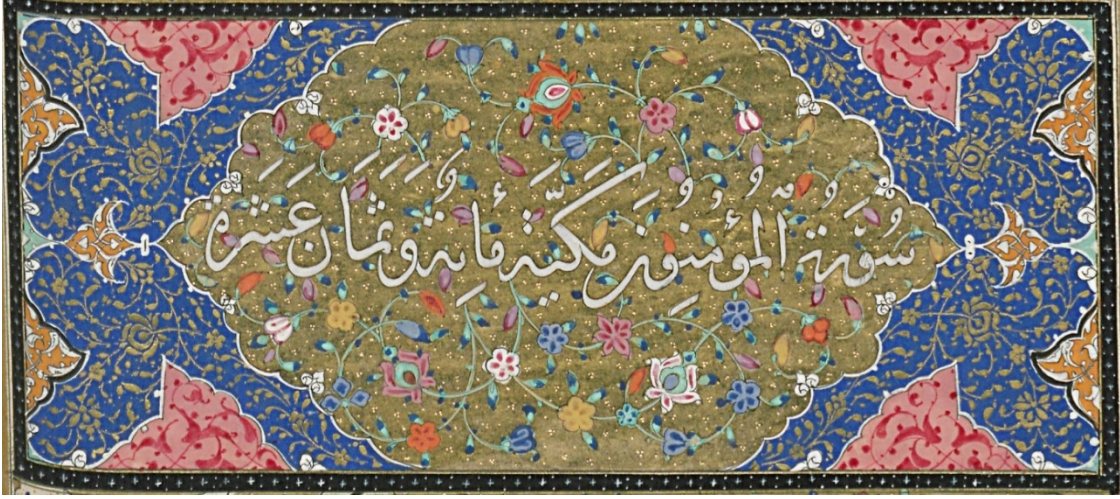 سُورَةُ الْمُؤْمِنُونَ مَكِّيَّةٌ مِأَيةٌ وَثَمَانَ عَشَرَةَ